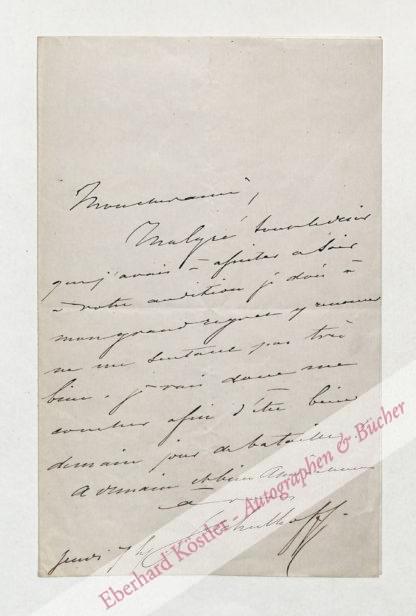 Mon cher ami,
Malgré tout le désir
que j'avais d'assister ce soir
à votre audition je dois à
mon grand regret y renoncer
ne me sentant pas très
bien. je vais donc me
coucher afin d'être bien
demain jour de bataille.
A demain et bien
à
Schulhoff.
Jeudi 7 h
Eberhard Köstler - Autographen & Bücher